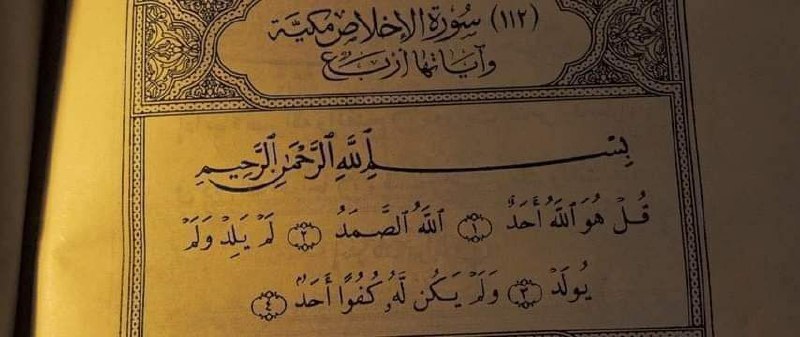 (١١٢) سُورَةُ الإِخْلَاصِ مَكِّيَّة
وَآيَاتُهَا أَرْبَع
بِسْمِ ٱللَّهِ ٱلرَّحْمَٰنِ ٱلرَّحِيمِ
قُلْ هُوَ ٱللَّهُ أَحَدٌ ١ ٱللَّهُ ٱلصَّمَدُ ٢ لَمْ يَلِدْ وَلَمْ
يُولَدْ ٣ وَلَمْ يَكُن لَّهُۥ كُفُوًا أَحَدٌۢ ٤